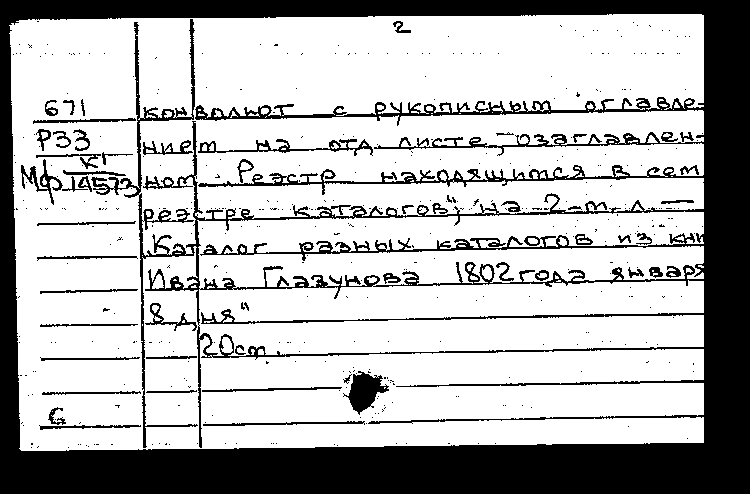 2
671 конволют с рукописным оглавле-
Р33 нием на отд. листе, озаглавлен-
К1
Мф 14573 ном „Реэстр находящится в сем
реэстре каталогов“; на 2-м л. —
„Каталог разных каталогов из кни
Ивана Глазунова 1802 года января
8 дня“
20 см.
G